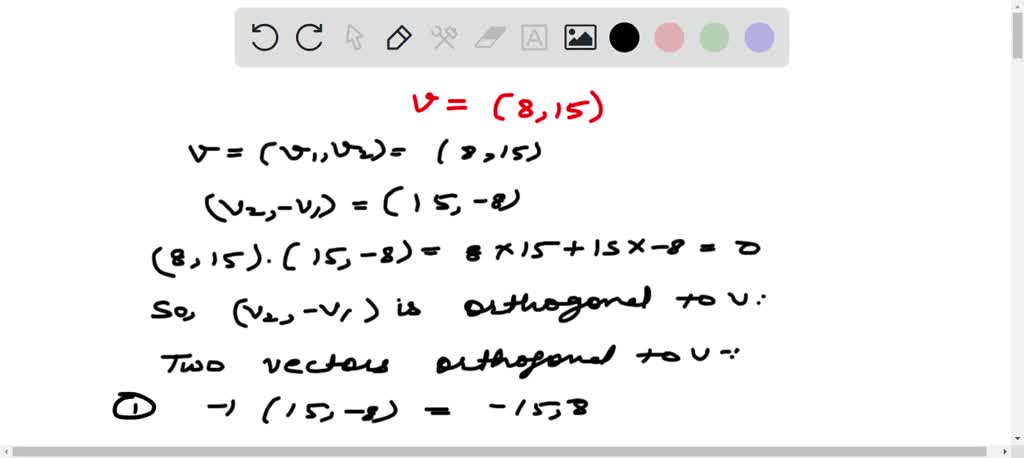 A
v = (8,15)
v = (v₁,v₂) = (8,15)
(v₂,-v₁) = (15,-8)
(8,15).(15,-8) = 8×15+15×-8 = 0
So, (v₂,-v₁) is orthogonal to v.
Two vectors orthogonal to v
① -1 (15,-8) = -15,8